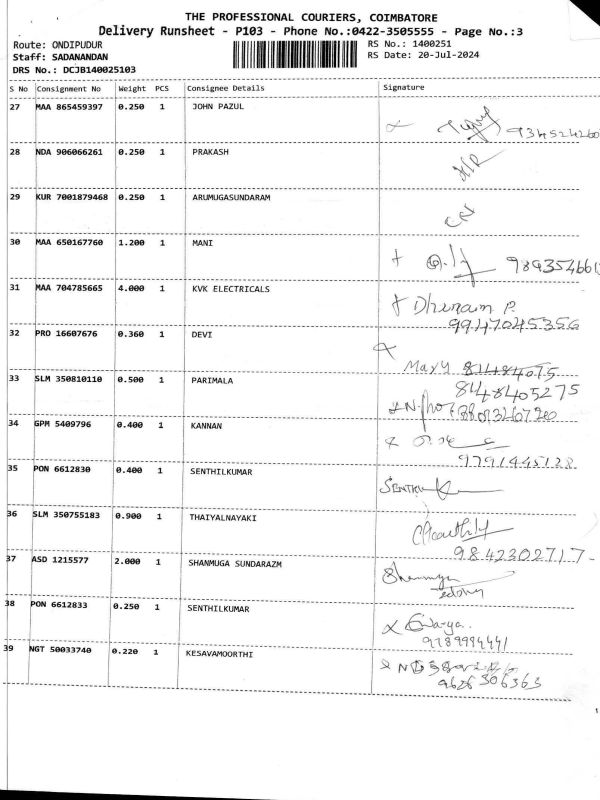 THE PROFESSIONAL COURIERS, COIMBATORE
Delivery Runsheet - P103 - Phone No.:0422-3505555 - Page No.:3
Route: ONDIPUDUR RS No.: 1400251
Staff: SADANANDAN RS Date: 20-Jul-2024
DRS No.: DCJB140025103
S No Consignment No Weight PCS Consignee Details Signature
27 MAA 865459397 0.250 1 JOHN PAZUL
28 NDA 906066261 0.250 1 PRAKASH
29 KUR 7001879468 0.250 1 ARUMUGASUNDARAM
30 MAA 650167760 1.200 1 MANI
31 MAA 704785665 4.000 1 KVK ELECTRICALS
Dhenam P.
9947045356
32 PRO 16607676 0.360 1 DEVI
Mary
8148405275
33 SLM 350810110 0.500 1 PARIMALA
34 GPM 5409796 0.400 1 KANNAN
9791445128
35 PON 6612830 0.400 1 SENTHILKUMAR
36 SLM 350755183 0.900 1 THAIYALNAYAKI
9842302717
37 ASD 1215577 2.000 1 SHANMUGA SUNDARAZM
38 PON 6612833 0.250 1 SENTHILKUMAR
9789994441
39 NGT 50033740 0.220 1 KESAVAMOORTHI
9626306363
1